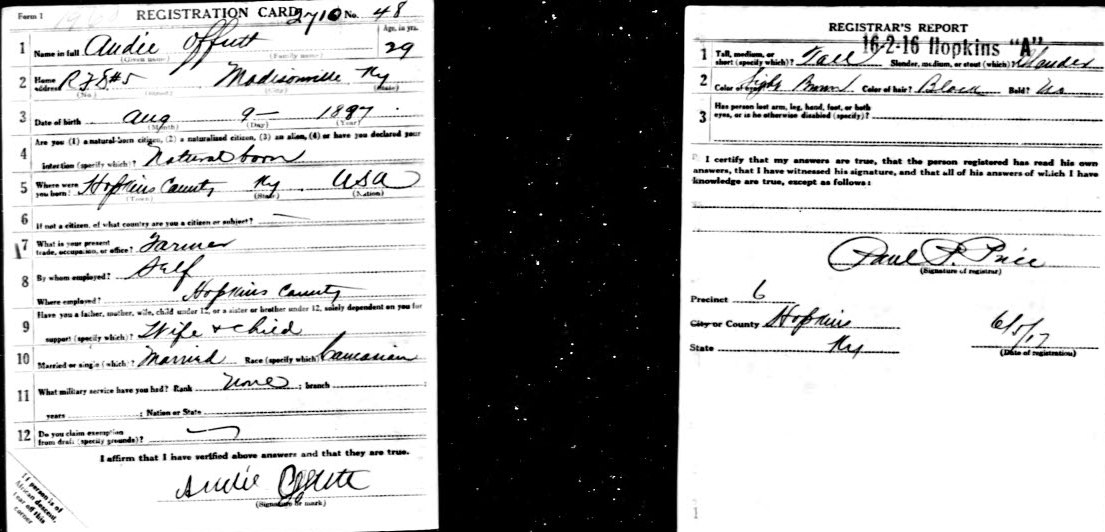 Form 1 REGISTRATION CARD 2710 No. 48
1 Name in full Audie Offutt Age, in yrs. 29
(Given name) (Family name)
2 Home address R F D #5 Madisonville Ky
(No.) (Street) (City) (State)
3 Date of birth Aug 9 — 1887
(Month) (Day) (Year)
Are you (1) a natural-born citizen, (2) a naturalized citizen, (3) an alien, (4) or have you declared your
4 intention (specify which)? Natural born
5 Where were you born? Hopkins County Ky USA
(Town) (State) (Nation)
6 If not a citizen, of what country are you a citizen or subject? —
7 What is your present trade, occupation, or office? Farmer
8 By whom employed? Self
Where employed? Hopkins County
Have you a father, mother, wife, child under 12, or a sister or brother under 12, solely dependent on you for
9 support (specify which)? Wife + child
10 Married or single (which)? Married Race (specify which)? Caucasian
11 What military service have you had? Rank None ; branch ;
years ; Nation or State
12 Do you claim exemption from draft (specify grounds)? —
I affirm that I have verified above answers and that they are true.
Audie Offutt
(Signature or mark)
If person is of
African descent,
tear off this
corner
REGISTRAR'S REPORT
16-2-16 Hopkins "A"
1 Tall, medium, or short (specify which)? Tall Slender, medium, or stout (which)? Slender
2 Color of eyes? Light Brown Color of hair? Black Bald? No
3 Has person lost arm, leg, hand, foot, or both eyes, or is he otherwise disabled (specify)?
I certify that my answers are true, that the person registered has read his own
answers, that I have witnessed his signature, and that all of his answers of which I have
knowledge are true, except as follows:
Paul P. Price
(Signature of registrar)
Precinct 6
City or County Hopkins
State Ky
6/5/17
(Date of registration)
1